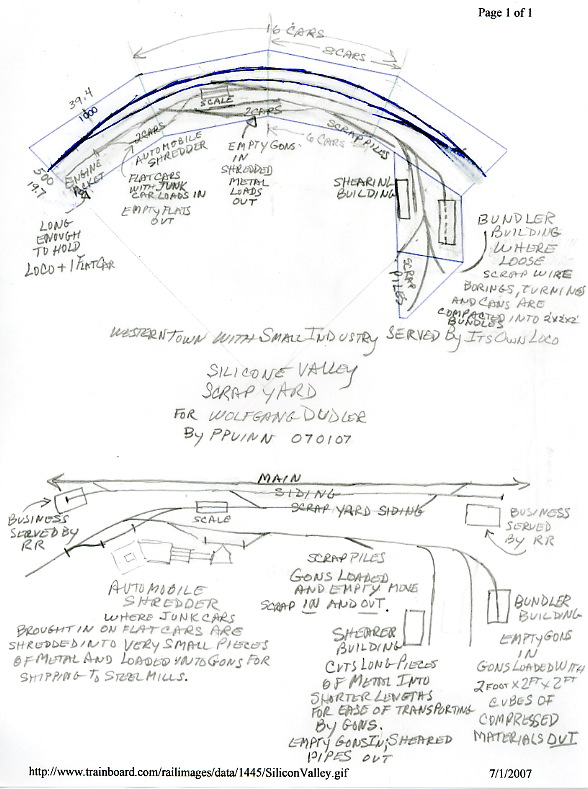 Page 1 of 1
16 CARS
8 CARS
39.4
1000
SCALE
2CARS
2CARS
6 CARS
SCRAP PILES
500
19.7
ENGINE
POCKET
AUTOMOBILE
SHREDDER
FLATCARS
WITH JUNK
CAR LOADS IN
EMPTY FLATS
OUT
EMPTY GONS
IN
SHREDDED
METAL
LOADS
OUT
SHEARING
BUILDING
LONG
ENOUGH
TO HOLD
LOCO + 1 FLATCAR
SCRAP
PILES
BUNDLER
BUILDING
WHERE
LOOSE
SCRAP WIRE
BORINGS, TURNINGS
AND CANS ARE
COMPACTED INTO 2'X2'X2'
BUNDLES
WESTERN TOWN WITH SMALL INDUSTRY SERVED BY ITS OWN LOCO
SILICONE VALLEY
SCRAP YARD
FOR WOLFGANG DUDLER
BY PPUINN 070107
MAIN
SIDING
SCRAP YARD SIDING
SCALE
BUSINESS
SERVED BY
RR
BUSINESS
SERVED
BY RR
AUTOMOBILE
SHREDDER
WHERE JUNK CARS
BROUGHT IN ON FLAT CARS ARE
SHREDDED INTO VERY SMALL PIECES
OF METAL AND LOADED INTO GONS FOR
SHIPPING TO STEEL MILLS.
SCRAP PILES
GONS LOADED
AND EMPTY MOVE
SCRAP IN AND OUT.
SHEARER
BUILDING
CUTS LONG PIECES
OF METAL INTO
SHORTER LENGTHS
FOR EASE OF TRANSPORTING
BY GONS.
EMPTY GONS IN; SHEARED
PIPES OUT
BUNDLER BUILDING
EMPTY GONS
IN
GONS LOADED WITH
2 FOOT X 2 FT X 2 FT
CUBES OF
COMPRESSED
MATERIALS OUT
http://www.trainboard.com/railimages/data/1445/SiliconValley.gif
7/1/2007